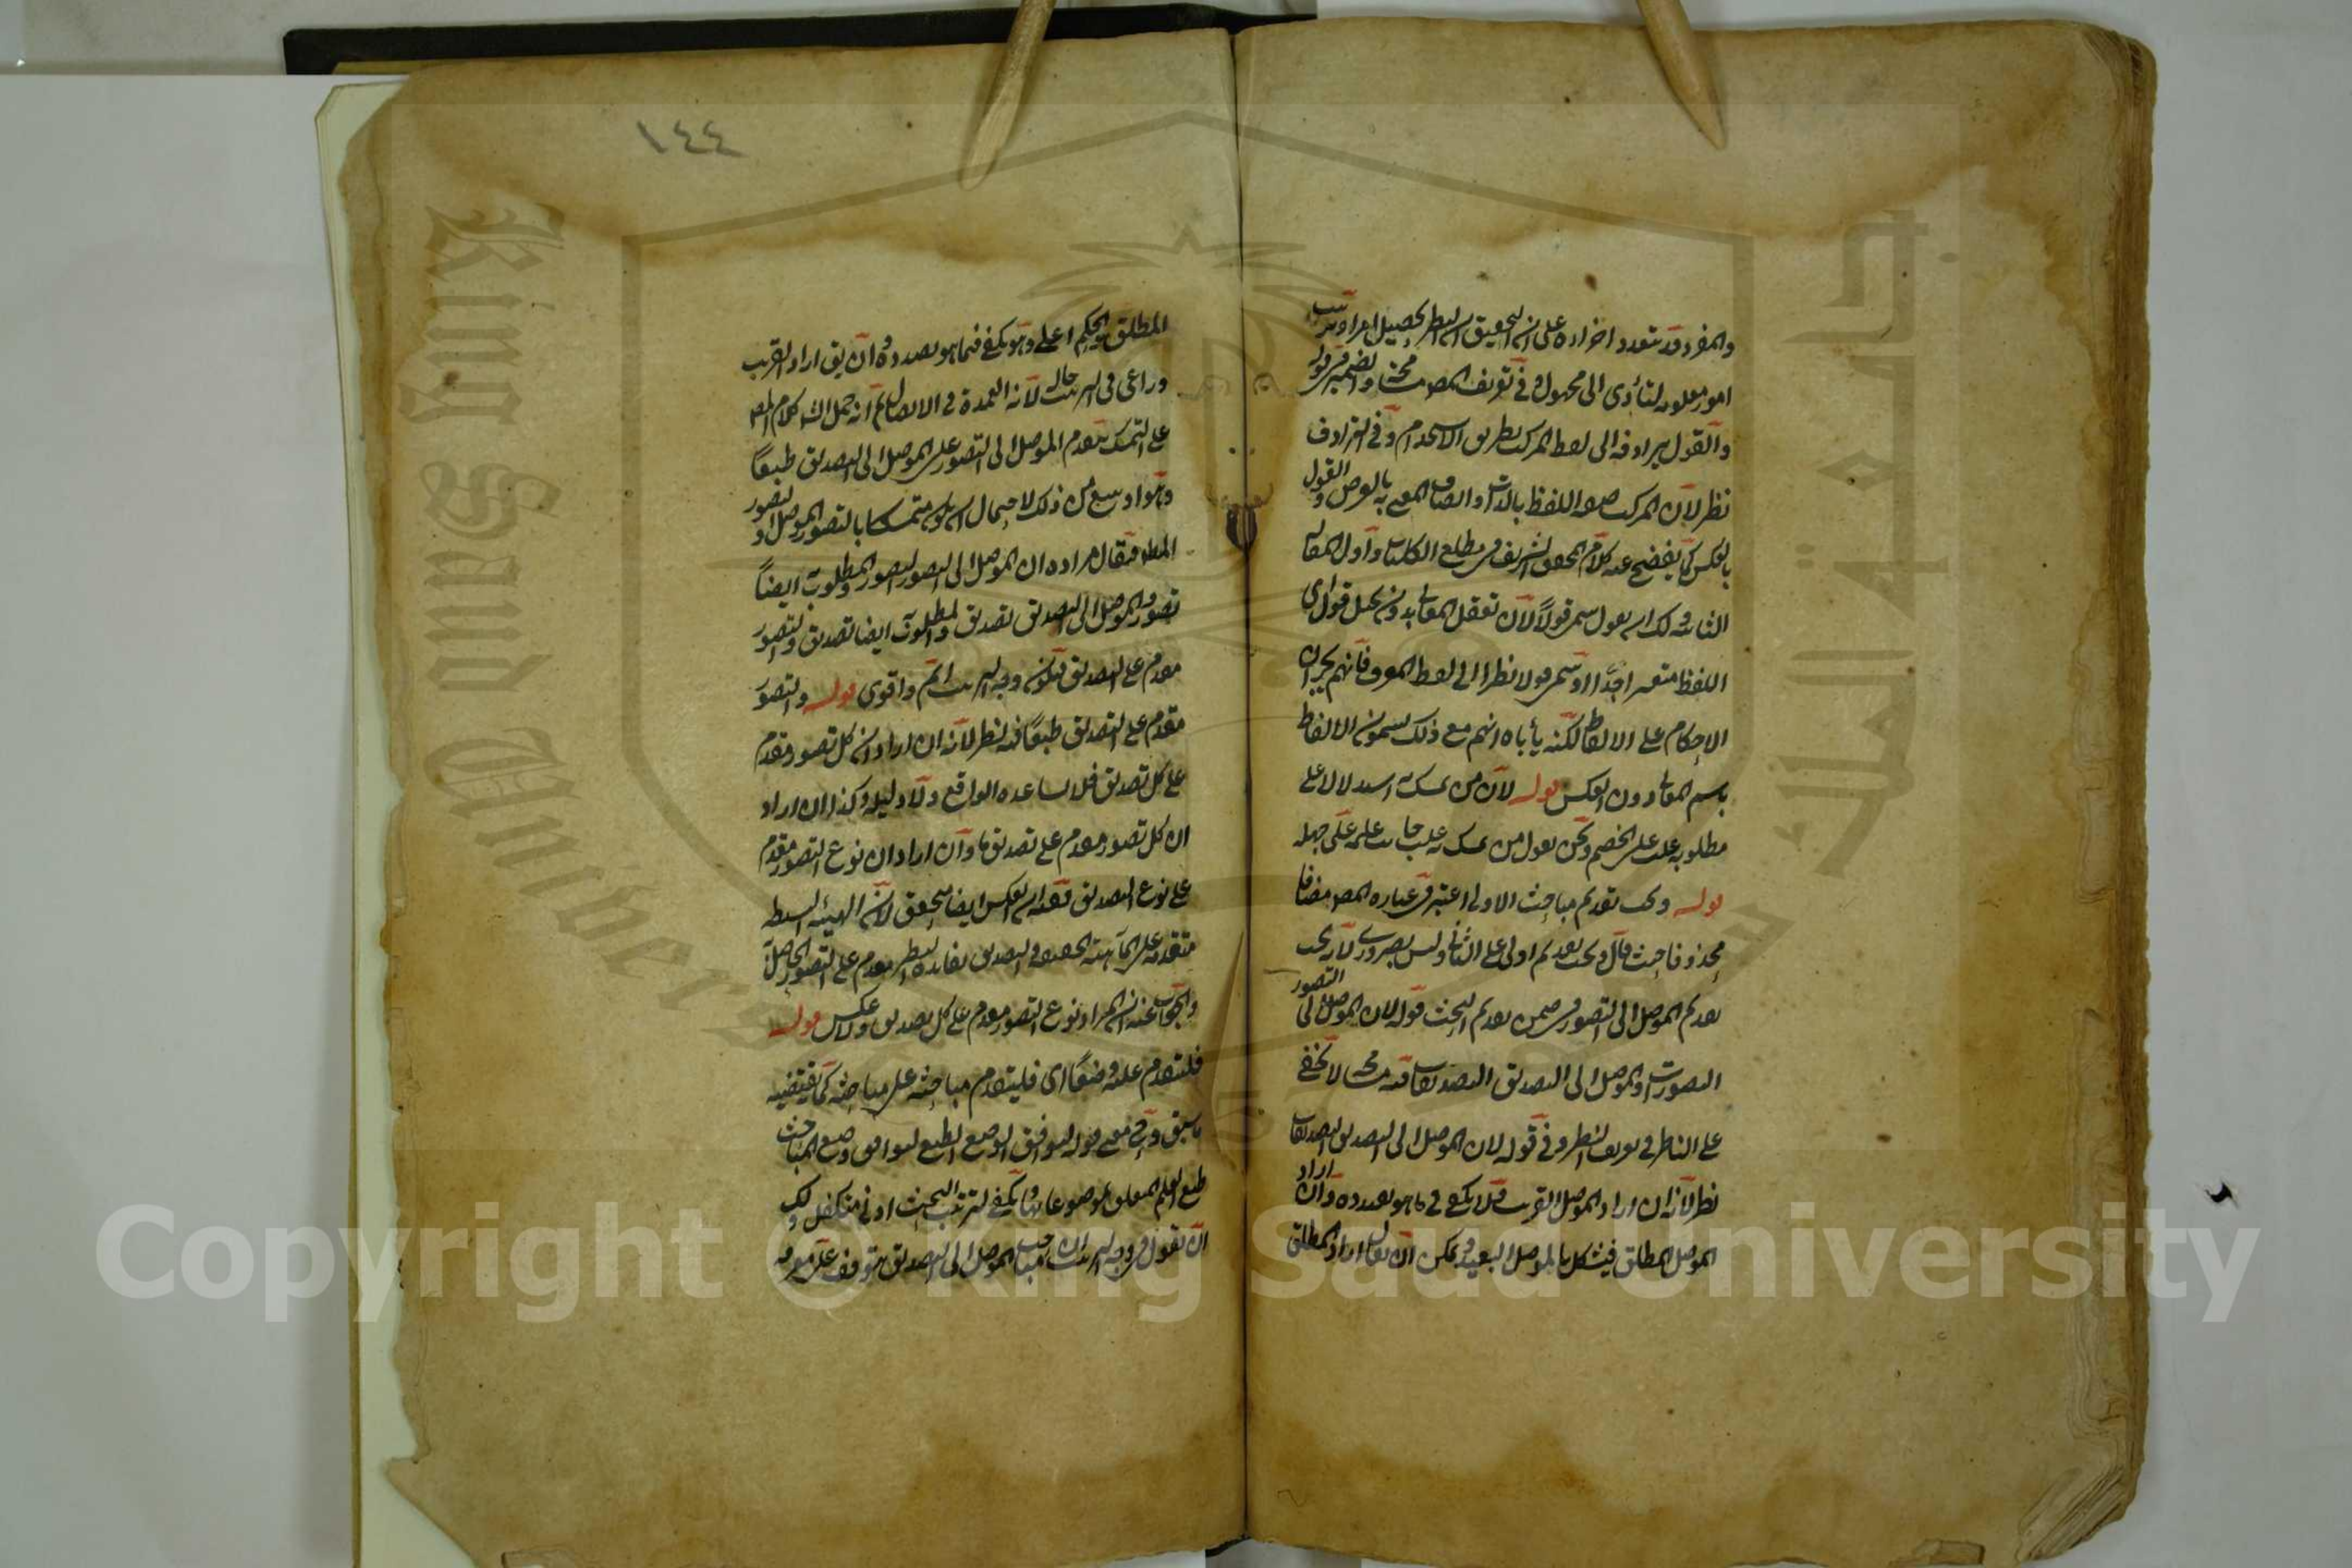 والمفرد قد يتعدد اجزاؤه على ان التحقيق ان النظر تحصيل امر او ترتيب
امور معلومة لتتأدى الى مجهول وفي تعريف المص بحث والضمير في قوله
والقول يرادفه الى لفظ المركب بطريق الاستخدام وفي الترادف
نظر لان المركب صفة اللفظ بالذات واتصاف المعنى به بالعرض والقول
بالعكس كما يفصح عنه كلام المحقق الشريف في مطلع الكليات وأول المقالة
الثانية ولك ان يقول سمي قولاً لان تعقل المعاني بدون تخيل قول اي
اللفظ متعسر جدّا او سمي قولا نظرا الى لفظ المعرف فانهم يجرون
الاحكام على الالفاظ لكنه يأباه انهم مع ذلك يسمون الالفاظ
باسم المعاني دون العكس قوله لان من تمسك به استدلالا على
مطلوبه غلب على الخصم ونحن نقول من تمسك به غلب جانب علمه على جهله
قوله ويجب تقديم مباحث الاولى اعتبر في عبارة المص مضافا
محذوفا حيث قال ويجب تقديم اولى على الثاني وليس بضروري لانه يجب
تقديم الموصل الى التصور في ضمن تقديم البحث قوله لان الموصل الى التصور
التصورات والموصل الى التصديق التصديقات فيه بحث لا يخفى
على الناظر في تعريف النظر وفي قوله لان الموصل الى التصديق التصديقات
نظر لانه ان اراد الموصل القريب فلا يكفي في ما هو بصدده وان اراد
الموصل المطلق فيشكل بالموصل البعيد ويمكن ان يقال اراد المطلق
١٤٤
المطلق والحكم اعلى وهو يكفي فيما هو بصدده وان يق اراد القريب
وراعى في الترتيب حاله لانه العمدة في الايصال ثم انه حمل الش كلام المص
على التمسك بتقدم الموصل الى التصور على الموصل الى التصديق طبعًا
وهو اوسع من ذلك لاحتمال ان يكون متمسكا بالتصور الموصل او التصور
المطلوب فقال مراده ان الموصل الى التصور تصور والمطلوب ايضاً
تصور والموصل الى التصديق تصديق والمطلوب ايضا تصديق والتصور
مقدم على التصديق فيكون وجه الترتيب اتم واقوى قوله والتصور
مقدم على التصديق طبعًا فيه نظر لانه ان اراد ان كل تصور مقدم
على كل تصديق فلا يساعده الواقع ولا دليله وكذا ان اراد
ان كل تصور مقدم على تصديق ما وان اراد ان نوع التصور مقدم
على نوع التصديق ففيه ان العكس ايضا متحقق لان الهيئة البسيطة
متقدمة على الماهية الحقيقية والتصديق بفائدة النظر مقدم على التصور الحاصل
والجواب عنه ان المراد نوع التصور مقدم على كل تصديق ولا عكس قوله
فليتقدم عليه وضعًا اى فليتقدم مباحثه على مباحثه كما يقتضيه
ما سبق وبقي معنى قوله ليوافق الوضع الطبع ليوافق وضع المباحث
طبع العلم المتعلق بموضوعاتها ويكفي لترتيب البحث ادنى متكفل ولك
ان تقول في وجه الترتيب ان مباحث الموصل الى التصديق يتوقف على معرفة